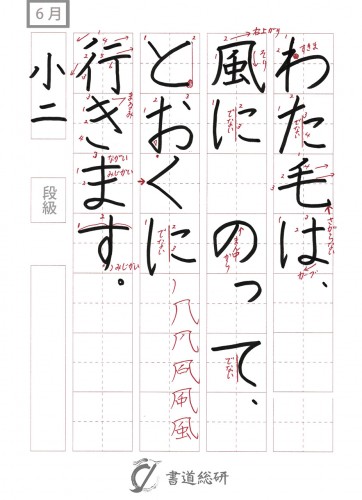 わた毛は、
すきま
さがらない
カーブ
風にのって、
右上がり
そり
でない
まん中から
でない
とおくに
でない
でない
風
行きます。
まるみ
ながい
みじかい
みじかい
6月
小二
段級
書道総研